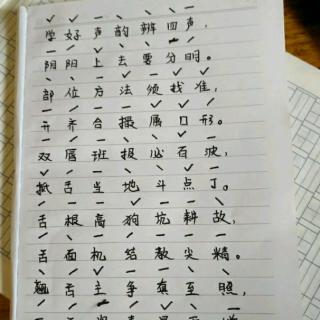 学好声韵辨四声，
阴阳上去要分明。
部位方法须找准，
开齐合撮属口形。
双唇班报必百波，
抵舌当地斗点丁。
舌根高狗坑耕故，
舌面机结教尖精。
翘舌主争真至照，